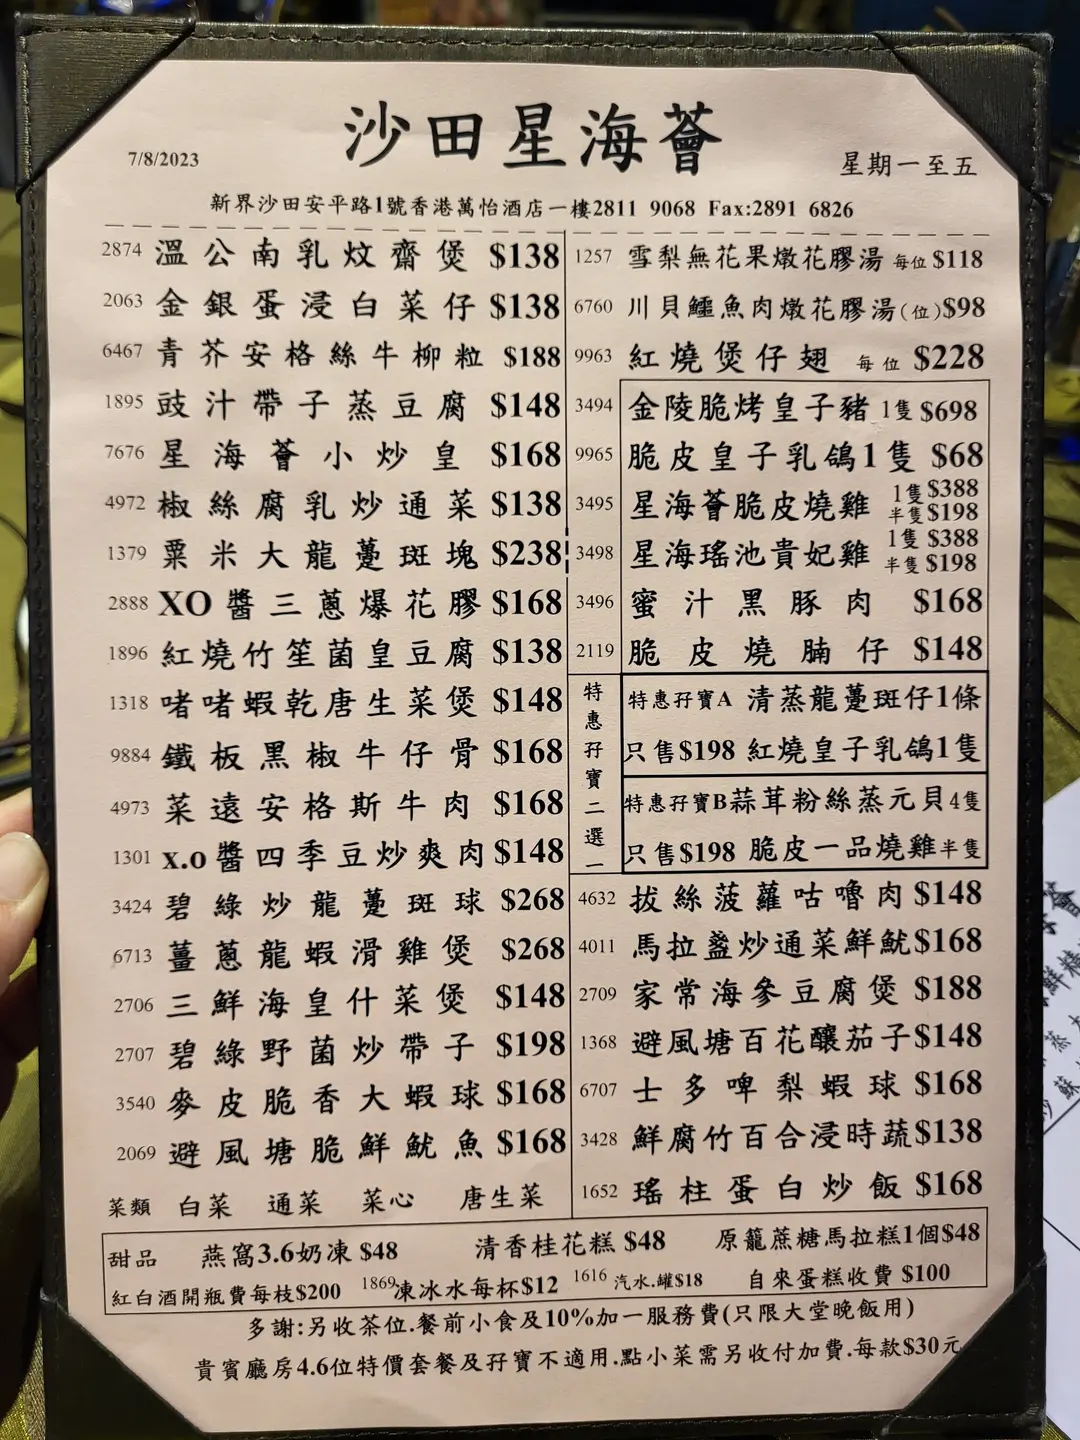 沙田星海薈
7/8/2023
星期一至五
新界沙田安平路1號香港萬怡酒店一樓2811 9068 Fax:2891 6826
2874 溫公南乳炆齋煲 $138
2063 金銀蛋浸白菜仔 $138
6467 青芥安格絲牛柳粒 $188
1895 豉汁帶子蒸豆腐 $148
7676 星海薈小炒皇 $168
4972 椒絲腐乳炒通菜 $138
1379 粟米大龍躉斑塊 $238
2888 XO醬三蔥爆花膠 $168
1896 紅燒竹笙菌皇豆腐 $138
1318 啫啫蝦乾唐生菜煲 $148
9884 鐵板黑椒牛仔骨 $168
4973 菜遠安格斯牛肉 $168
1301 x.o醬四季豆炒爽肉 $148
3424 碧綠炒龍躉斑球 $268
6713 薑蔥龍蝦滑雞煲 $268
2706 三鮮海皇什菜煲 $148
2707 碧綠野菌炒帶子 $198
3540 麥皮脆香大蝦球 $168
2069 避風塘脆鮮魷魚 $168
菜類 白菜 通菜 菜心 唐生菜
1257 雪梨無花果燉花膠湯 每位 $118
6760 川貝鱷魚肉燉花膠湯(位)$98
9963 紅燒煲仔翅 每位 $228
3494 金陵脆烤皇子豬 1隻 $698
9965 脆皮皇子乳鴿1隻 $68
3495 星海薈脆皮燒雞 1隻 $388
半隻 $198
3498 星海瑤池貴妃雞 1隻 $388
半隻 $198
3496 蜜汁黑豚肉 $168
2119 脆皮燒腩仔 $148
特惠孖寶二選一
特惠孖寶A 清蒸龍躉斑仔1條
只售$198 紅燒皇子乳鴿1隻
特惠孖寶B蒜茸粉絲蒸元貝4隻
只售$198 脆皮一品燒雞半隻
4632 拔絲菠蘿咕嚕肉 $148
4011 馬拉盞炒通菜鮮魷$168
2709 家常海參豆腐煲 $188
1368 避風塘百花釀茄子$148
6707 士多啤梨蝦球 $168
3428 鮮腐竹百合浸時蔬$138
1652 瑤柱蛋白炒飯 $168
甜品 燕窩3.6奶凍 $48 清香桂花糕 $48 原籠蔗糖馬拉糕1個$48
紅白酒開瓶費每枝$200 1869凍冰水每杯$12 1616 汽水.罐$18 自來蛋糕收費 $100
多謝:另收茶位.餐前小食及10%加一服務費(只限大堂晚飯用)
貴賓廳房4.6位特價套餐及孖寶不適用.點小菜需另收付加費.每款$30元